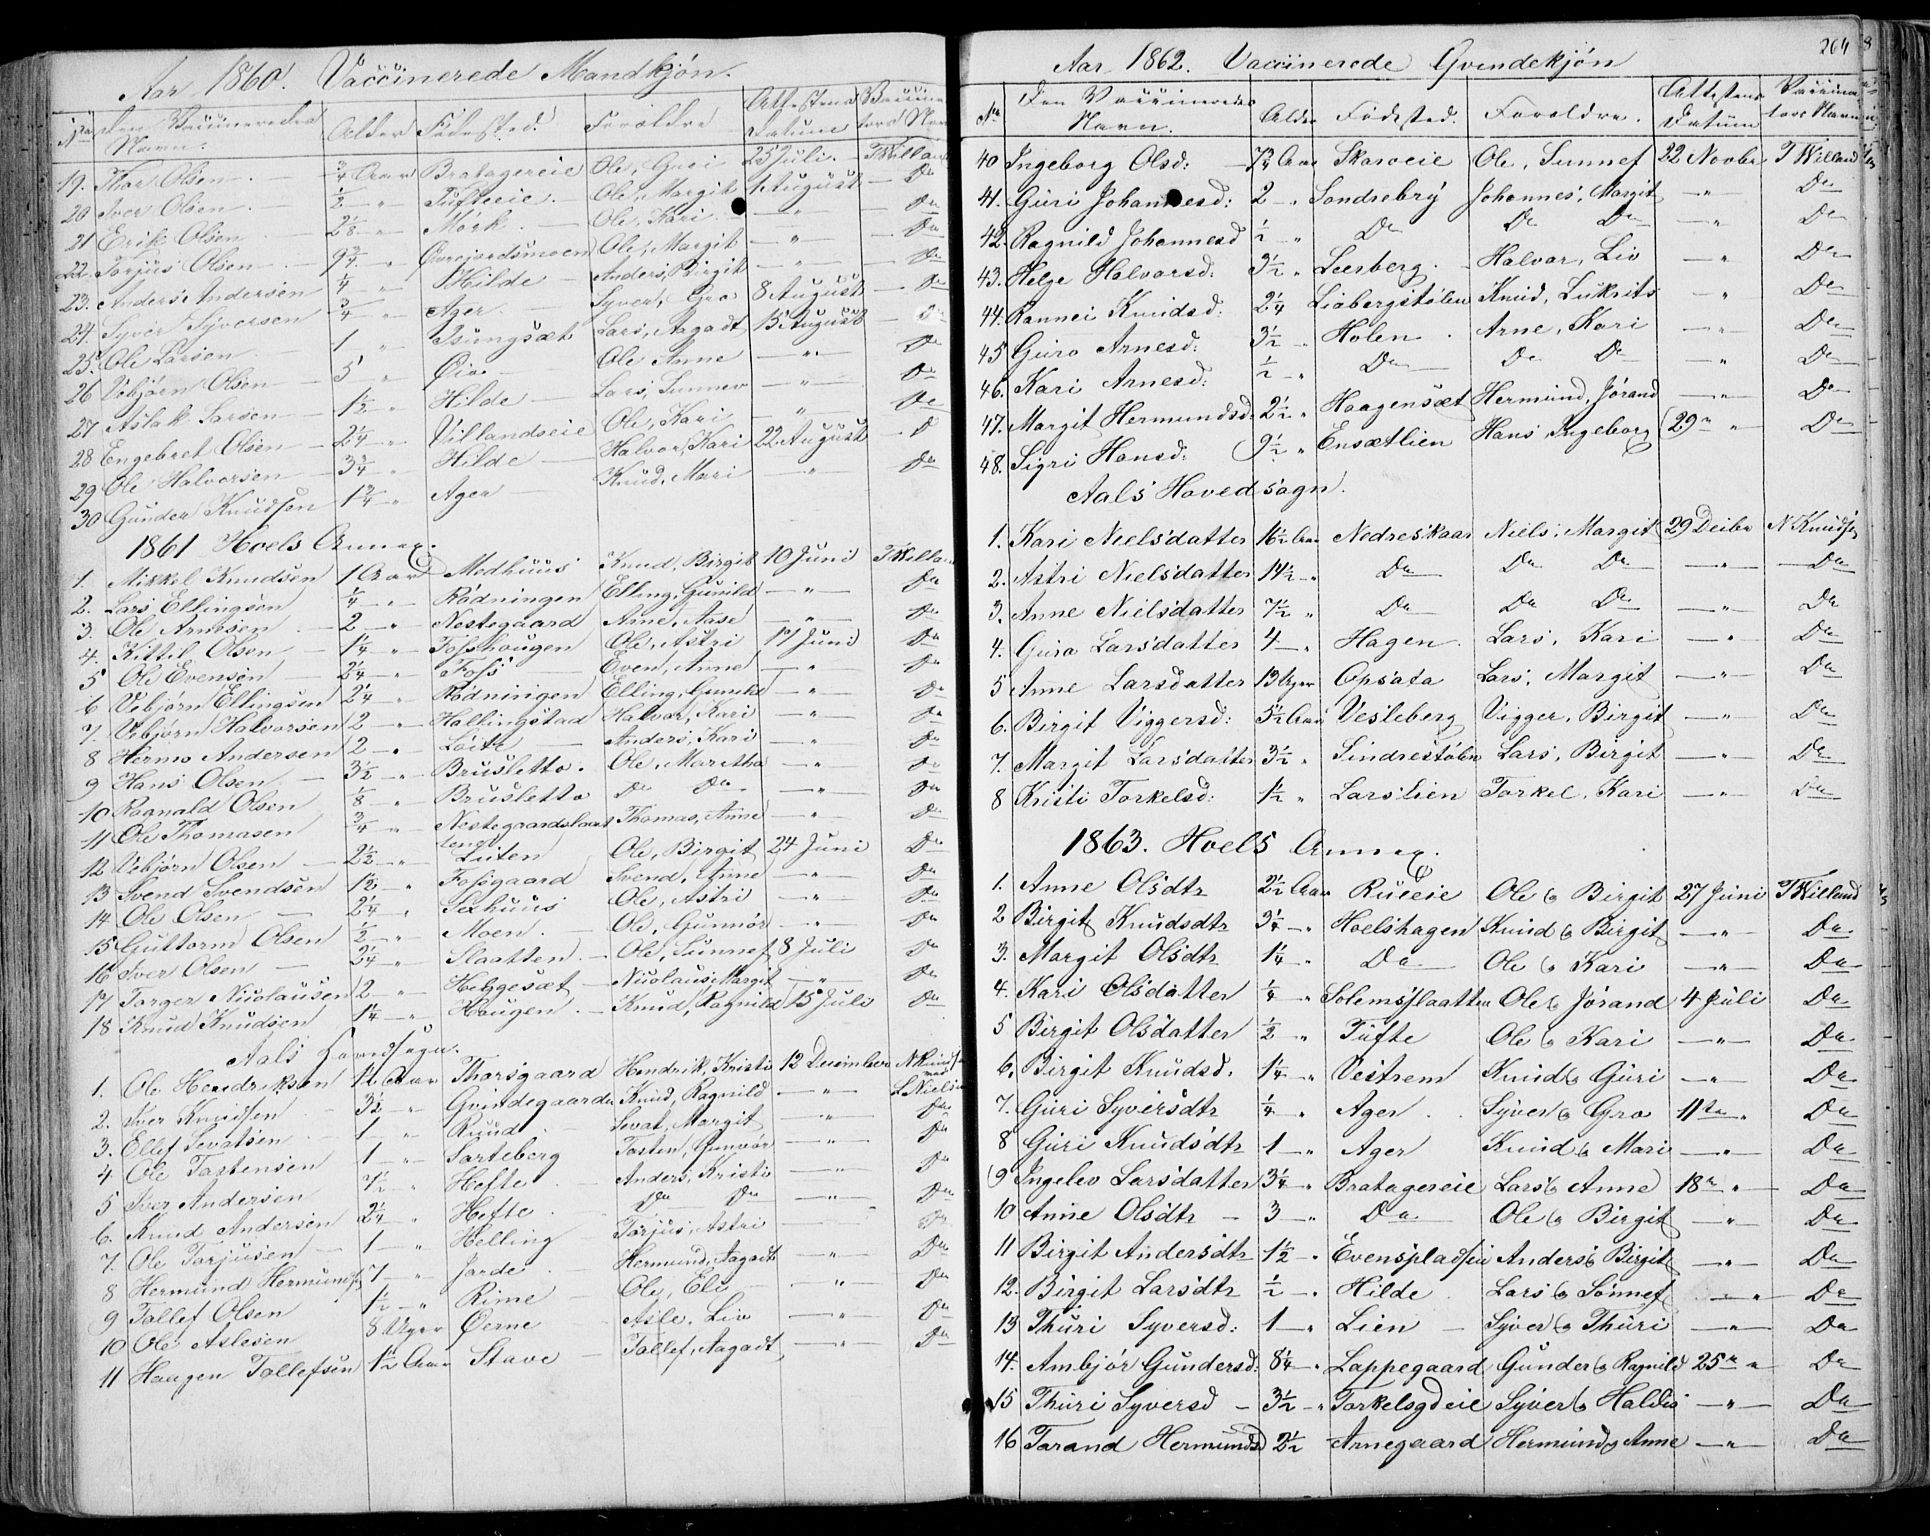 Aar 1860. Vaccinerede Mandkjön.
No Den Vaccineredes Navn. Alder Födested. Forældre Attestens Datum
19. Thor Olsen ¾ Aar Bratagereie Ole, Guri 25 Juli. T Villan
20 Iver Olsen ½ " Tufteeie Ole, Margit 1 August Do
21 Erik Olsen 2⅛ " Mörk Ole, Kari " Do
22. Torjus Olsen 9¾ Ole, Margit " Do
23. Anders Andersen ¼ " Hilde Anders, Birgit " Do
24. Syver Syversen ¾ " Ager Syver, Gro 8 August Do
25. Ole Larsen 1 " Lars, Aagodt 15 August Do
26 Vebjörn Olsen 5 " Öio Ole Anne " Do
27 Aslak Larsen 1½ " Hilde Lars, Sunnev " Do
28 Engebret Olsen 2¼ " Villandseie Ole, Kari " Do
29 Ole Halvorsen 3¾ " Hilde Halvor, Kari 22 August D
30 Gunder Knudsen 1¾ " Ager Knud, Mari " Do
1861 Hoels Annex.
1. Mikkel Knudsen 1 Aar Medhuus Knud, Birgit 10 Juni T Villan
2. Lars Ellingsen ¼ " Rödningen Elling, Gunild " Do
3. Ole Arnesen 2 " Nestegaard Arne, Aase " Do
4. Kittil Olsen 1¼ " Fosshougen Ole, Astri 17 Juni Do
5 Ole Evensen 2¼ " Foss Even, Anne " Do
6 Vebjörn Ellingsen 2¼ " Rödningen Elling, Gunild " Do
7 Vebjörn Halvorsen 2 " Hallingstad Halvor, Kari " Do
8 Hermo Andersen 2 " Löite Anders, Kari " Do
9 Hans Olsen 3½ " Brusletto Ole, Maritha " Do
10 Ragnald Olsen ⅛ " Brusletto Do Do " Do
11 Ole Thomasen ¾ " Thomas, Anne " Do
12 Vebjörn Olsen 2½ " Luten Ole, Birgit 24 Juni Do
13 Svend Svendsen 1½ " Fossgaard Svend, Anne " Do
14 Ole Olsen 2¼ " Sexhuus Ole, Astri " Do
15 Guttorm Olsen ½ " Moen Ole, Gunnör " Do
16 Iver Olsen 2¼ " Slaatten Ole, Sunnef 8 Juli Do
17 Torger Nicolausen 2 " Helgesæt Nicolaus, Margit " Do
18 Knud Knudsen 1¼ " Haugen Knud, Ragnild 15 Juli Do
Aals Hovedsogn.
1. Ole Hendriksen 1½ Aar Thorsgaard Hendrik, Kristi 12 December N Knudsen
2. Iver Knudsen 3½ " Gvindegaarden Knud, Ragnild " L Nielsen
3. Ellef Sevatsen 1 " Ruud Sevat, Margit " Do
4 Ole Tostensen 1 " Sorteberg Tosten, Gunvör " Do
5 Iver Andersen 7½ " Hefte Anders, Kristi " Do
6. Knud Andersen 2¼ " Hefte Do Do " Do
7. Ole Torjusen 1 " Helling Torjus, Astri Do
8 Hermund Hermunds 7 " Jorde Hermund, Aagodt " Do
9 Tollef Olsen 1½ " Rime Ole, Eli " Do
10 Ole Aslesen 8 Uger Öerne Asle, Liv " Do
11 Haagen Tollefsen 1½ Aar Stave Tollef, Aagodt " Do
264
Aar 1862. Vaccinerede Qvindekjön
No Den Vaccineredes Navn. Alder Födested. Forældre. Attestens Datum Vaccinatörs Navn
40 Ingeborg Olsd: 7¾ Aar Skaroeie Ole, Sunnef 22 Novbr T Villand
41. Guri Johannesd: 2 " Sondrebry Johannes, Margit " Do
42. Ragnild Johannesd ½ " Do Do Do " Do
43. Helge Halvorsd: 3½ " Leerberg Halvor, Liv " Do
44. Rannei Knudsd: 2¼ Liabergstölen Knud, Lukrits " Do
45 Guro Arnesd: 3½ " Holen Arne, Kari " Do
46. Kari Arnesd: ½ " Do Do Do " Do
47. Margit Hermundsd: 2½ " Haagensæt Hermund, Jörand " Do
48. Sigri Hansd: 9½ " Ensætlien Hans Ingeborg 29 " Do
Aals Hovedsogn.
1. Kari Nielsdatter 16½ Aar Nedreskaar Niels, Margit 29 Decbr N Knudsen
2. Astri Nielsdatter 14½ " Do Do Do " Do
3. Anne Nielsdatter 7½ " Do Do Do " Do
4. Guro Larsdatter 4 " Hagen Lars, Kari " Do
5 Anne Larsdatter 13 Uger Opsata Lars, Margit " Do
6. Birgit Viggersd: 5½ Aar Vesleberg Vigger, Birgit " Do
7. Margit Larsdatter 3½ " Sindrestölen Lars, Birgit " Do
8 Kristi Torkelsd: 1½ " Larslien Torkel, Kari " Do
1863. Hoels Annex.
1. Anne Olsdtr 2½ Aar Rueeie Ole & Birgit 27 Juni T Villand
2 Birgit Knudsdtr 3¼ " Hoelshagen Knud & Birgit " Do
3. Margit Olsdtr 1¼ " Do Ole & Kari " Do
4. Kari Olsdatter ¼ " Solemsslaatten Ole & Jörand 4 Juli Do
5 Birgit Olsdatter ½ " Tufte Ole & Kari " Do
6. Birgit Knudsd. 1¼ " Vestrem Knud & Guri " Do
7. Guri Syversdtr ¼ " Ager Syver & Gro 11te " Do
8 Guri Knudsdtr 1 " Ager Knud & Mari " Do
9 Ingelev Larsdatter 3¼ " Bratagereie Lars & Anne 18 " Do
10 Anne Olsdtr 3 " Do Ole & Birgit " Do
11 Birgit Andersdtr 1½ " Evenspladsen Anders & Birgit " Do
12. Birgit Larsdtr ½ " Hilde Lars & Sönnef " Do
13 Thuri Syversd: 1 " Lien Syver & Thuri " Do
14. Ambjör Gundersd: 8¼ " Lappegaard Gunder & Ragnild 25 " Do
15 Thuri Syversd 3½ " Torkelsgdeie Syver & Haldis " Do
16 Torand Hermundsd 2½ Arnegaard Hermund & Anne " Do